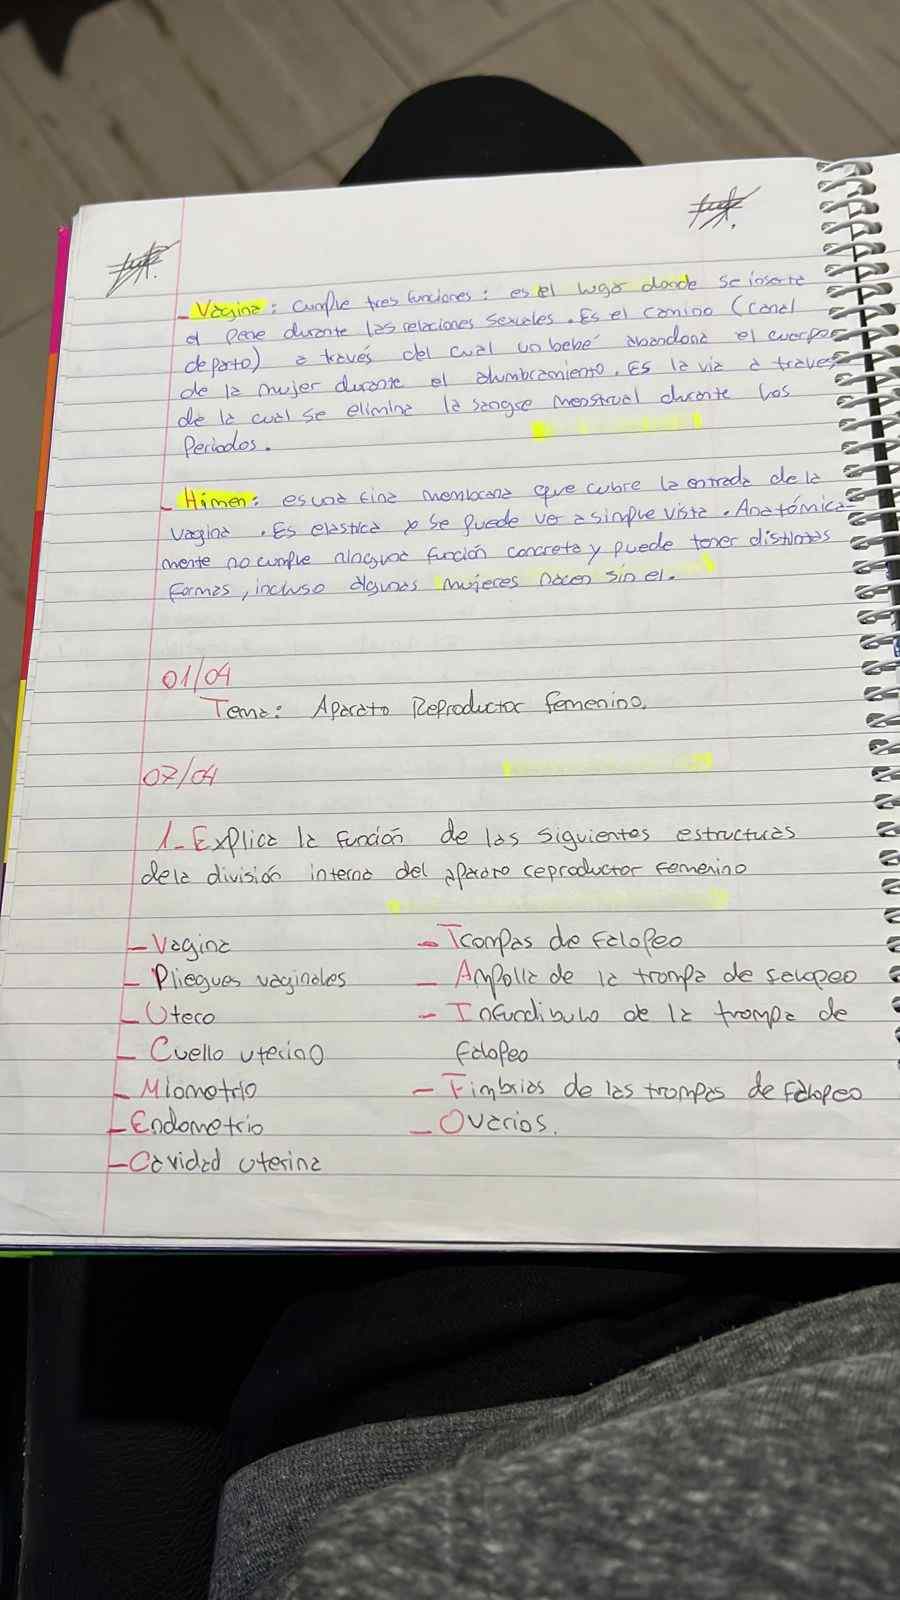 - Vagina: cumple tres funciones: es el lugar donde se inserta
el pene durante las relaciones sexuales. Es el camino (canal
de parto) a través del cual un bebé abandona el cuerpo
de la mujer durante el alumbramiento. Es la via a traves
de la cual se elimina la sangre menstrual durante los
Periodos.
- Himen: es una fina membrana que cubre la entrada de la
vagina. Es elastica y se puede ver a simple vista. Anatómica-
mente no cumple ninguna función concreta y puede tener distintas
formas, incluso algunas mujeres nacen sin el.
01/04
Tema: Aparato Reproductor Femenino.
07/04
1- Explica la función de las siguientes estructuras
de la división interna del aparato reproductor femenino
- Vagina
- Pliegues vaginales
- Utero
- Cuello uterino
- Miometrio
- Endometrio
- Cavidad uterina
- Trompas de Falopeo
- Ampolla de la trompa de falopeo
- Infundibulo de la trompa de
falopeo
- Fimbrias de las trompas de falopeo
- Ovarios.